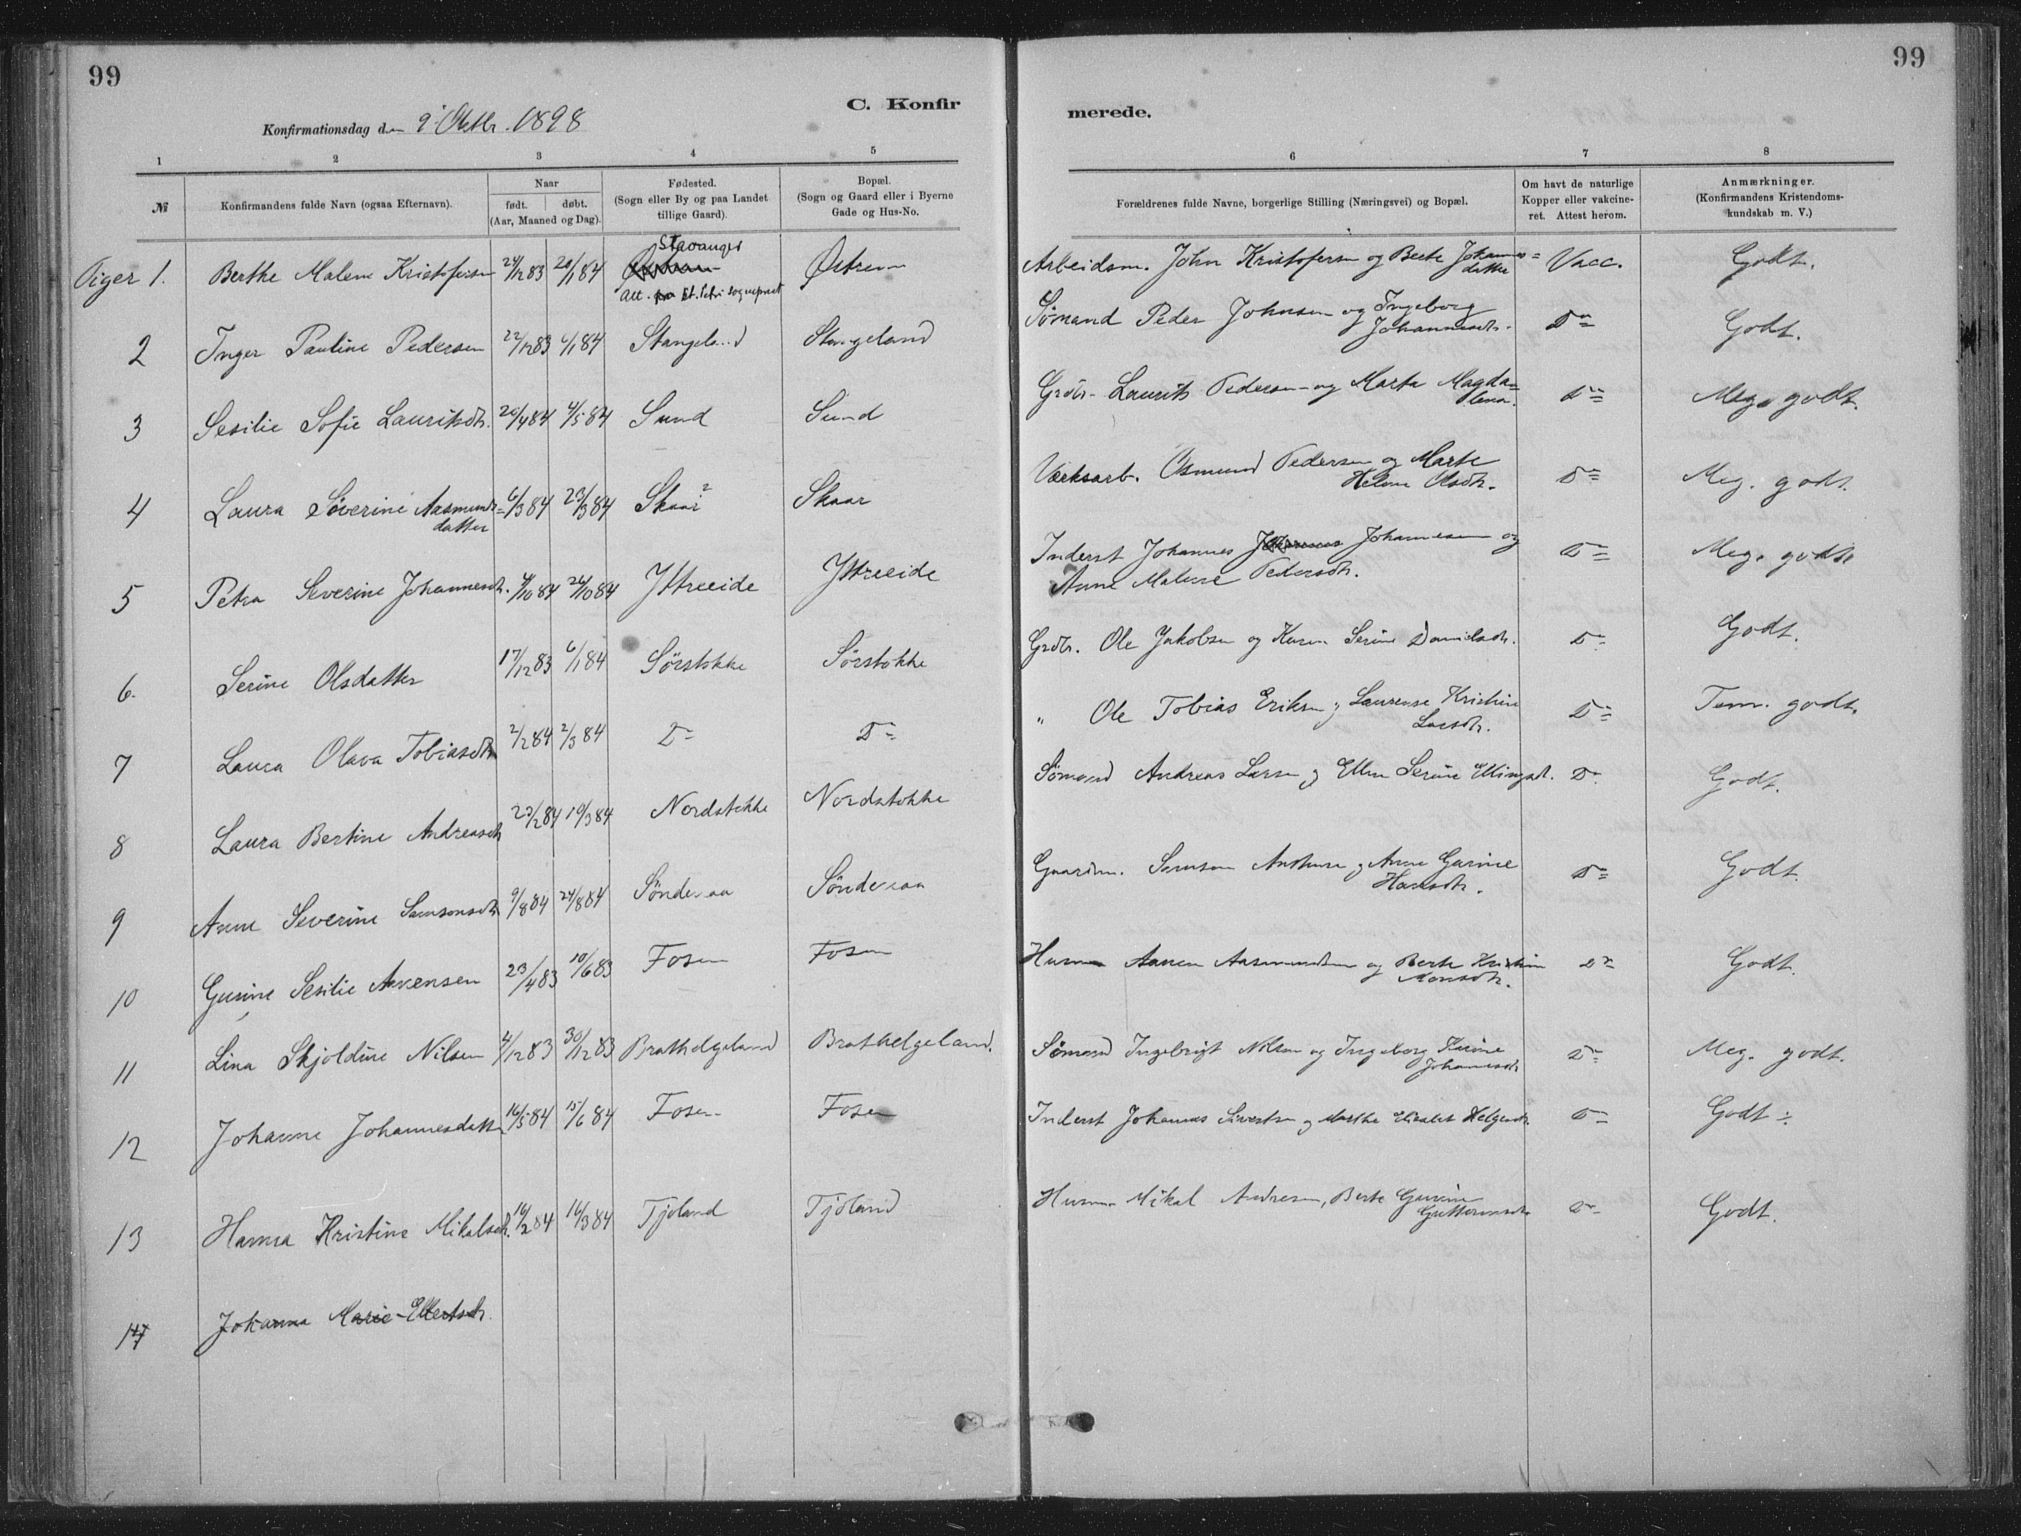 99
C. Konfir
Konfirmationsdag den 9' Oktbr. 1898
1 2 3 4 5
№ Konfirmandens fulde Navn (ogsaa Efternavn). Naar født. døbt. (Aar, Maaned og Dag). Fødested. (Sogn eller By og paa Landet tillige Gaard). Bopæl. (Sogn og Gaard eller i Byerne Gade og Hus-No.
Piger 1. Berthe Malene Kristofersen 24/12 83 20/1 84 Stavanger Østrem
Att. fra St. Petri sognepræst
2 Inger Pauline Pedersen 22/12 83 6/1 84 Stangeland Stangeland
3 Sesilie Sofie Lauritsdtr. 20/4 84 4/5 84 Sund Sund
4 Laura Søverine Aasmunds= 6/3 84 23/3 84 Skaar Skaar
datter
5 Petra Severine Johannesdtr. 26/10 84 Ytreeide Ytreeide
6. Serine Olsdatter 17/12 83 6/1 84 Sørstokke Sørstokke
7 Laura Olava Tobiasdtr 2/2 84 2/3 84 Do Do
8 Laura Bertine Andreasdtr 23/2 84 10/3 84 Nordstokke Nordstokke
9 Anne Severine Samsonsdtr 9/8 84 24/8 84 Sønderaa Sønderaa
10 Gurine Sesilie Aavensen 23/4 83 10/6 83 Fosen Fosen
11 Lina Skjoldine Nilsen 4/12 83 30/12 83 Brathelgeland Brathelgeland.
12 Johanne Johannesdatter 16/5 84 15/6 84 Fosen Fosen
13 Hanna Kristine Mikalsdtr. 16/2 84 16/3 84 Tjøland Tjøland
14 Johanna Marie Ellertsdtr.
99
merede.
6 7 8
Forældrenes fulde Navne, borgerlige Stilling (Næringsvei) og Bopæl. Om havt de naturlige Kopper eller vakcineret. Attest herom. Anmærkninger. (Konfirmandens Kristendomskundskab m. V.)
Arbeidsm. John Kristofersen og Berte Johannes= Vacc. Godt.
datter
Sømand Peder Johnsen og Ingeborg Do Godt.
Johannesdtr.
Grdbr. Laurits Pedersen og Marta Magda= Do Meg. godt.
lena.
Værksarb. Osmund Pedersen og Marte Do Meg. godt.
Helene Olsdtr.
Inderst Johannes Johannesen og Do Meg. godt.
Anne Malene Pedersdtr.
Grdbr. Ole Jakobsen og Karen Serine Danielsdtr. Do Godt.
" Ole Tobias Eriksen og Laurense Kristine Do Tem. godt.
Larsdtr.
Sømand Andreas Larsen og Ellen Serine Ellingsdt. Do Godt.
Gaardm. Samson og Anne Gurine Do Godt.
Hansdtr.
Husm. Aanen Aasmundsen og Berte Kristine Do Godt.
Monsdtr.
Sømand Ingebrigt Nilsen og Ingeborg Karine Do Meg. godt.
Johannesdtr
Inderst Johannes Sivertsen og Marthe Elisabet Helgesdtr. Do Godt ÷
Husm. Mikal Andresen, Berte Gurine Do Godt.
Guttormsdtr